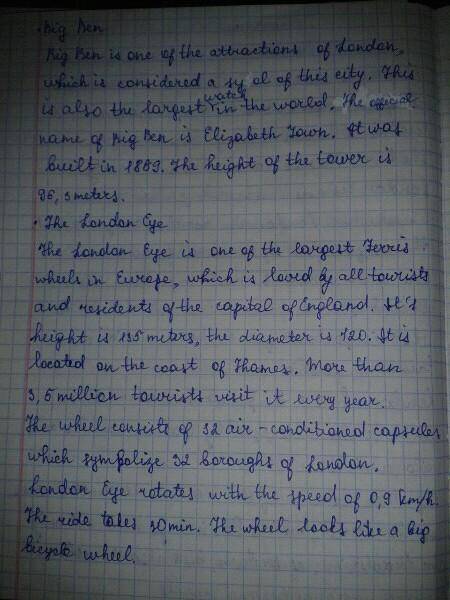 · Big Ben
Big Ben is one of the attractions of London,
which is considered a sy ol of this city. This
is also the largest watch in the world. The official
name of Big Ben is Elizabeth Town. It was
built in 1859. The height of the tower is
96,3 meters.
· The London Eye
The London Eye is one of the largest Ferris
wheels in Europe, which is loved by all tourists
and residents of the capital of England. It's
height is 135 meters, the diameter is 120. It is
located on the coast of Thames. More than
3,5 million tourists visit it every year.
The wheel consists of 32 air-conditioned capsules
which symbolize 32 boroughs of London.
London Eye rotates with the speed of 0,9 km/h.
The ride takes 30 min. The wheel looks like a big
bicycle wheel.